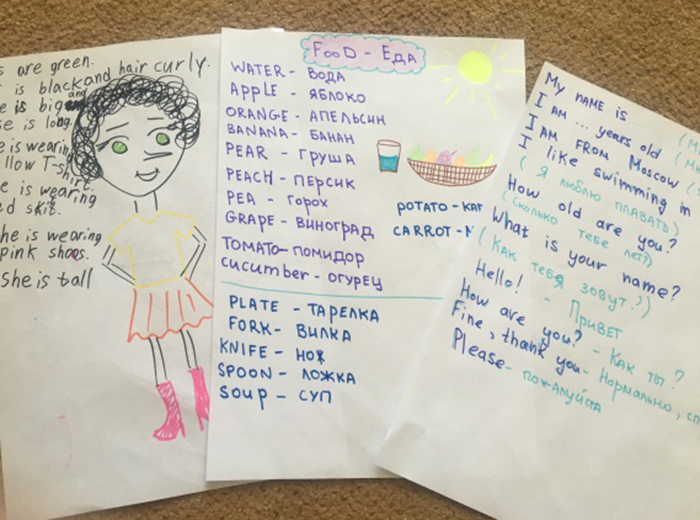 s are green.
is black and hair curly.
e is big and
se is long.
e is wearing
llow T-shirt.
e is wearing
ed skit.
he is wearing
pink shoes.
She is tall
FOOD - ЕДА
WATER - ВОДА
APPLE - ЯБЛОКО
ORANGE - АПЕЛЬСИН
BANANA - БАНАН
PEAR - ГРУША
PEACH - ПЕРСИК
PEA - ГОРОХ
GRAPE - ВИНОГРАД
TOMATO - ПОМИДОР
cucumber - ОГУРЕЦ
POTATO - КАР
CARROT -
PLATE - ТАРЕЛКА
FORK - ВИЛКА
KNIFE - НОЖ
SPOON - ЛОЖКА
SOUP - СУП
My NAME is ...
I AM ... years old
I AM FROM Moscow
I like swimming in
(Я люблю ПЛАВАТЬ)
How old are you?
(Сколько тебе лет?)
What is your name?
(Как тебя зовут?)
Hello! - Привет
How are you? - Как ты?
Fine, thank you - Нормально, сп
Please - пожалуйста